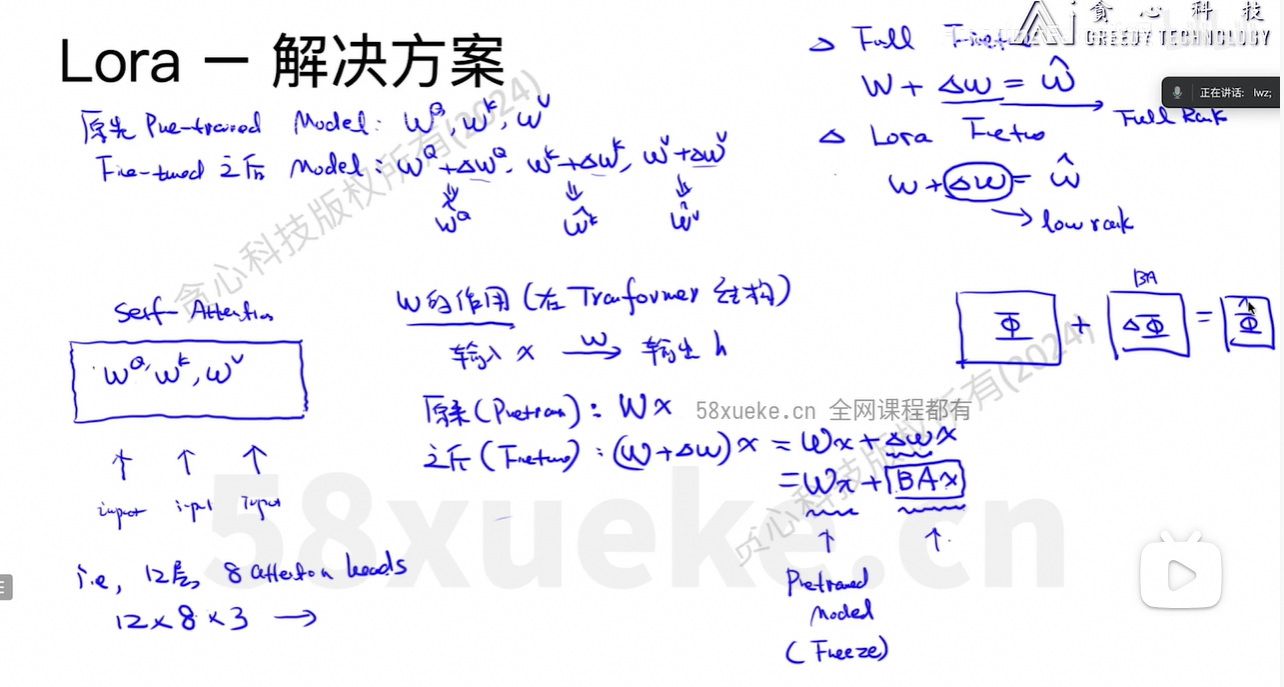 Lora — 解决方案
贪心科技
GREEDY TECHNOLOGY
正在讲话: lwz;
原先 Pre-trained Model: W^Q, W^K, W^V
Fine-tuned 之后 Model: W^Q+ΔW^Q, W^K+ΔW^K, W^V+ΔW^V
Ŵ^Q Ŵ^K Ŵ^V
△ Full
W + ΔW = Ŵ
Full Rank
△ Lora
W + ΔW = Ŵ
low rank
BA
Φ + ΔΦ = Φ̂
Self-Attention
W^Q, W^K, W^V
input input input
i.e, 12层, 8 attention heads
12 × 8 × 3 →
W的作用 (在 Tranformer 结构)
输入 x W→ 输出 h
原来 (Pretrain) : Wx
58xueke.cn 全网课程都有
之后 (Finetune) : (W+ΔW)x = Wx + ΔWx
= Wx + BAx
Pretrained
Model
(Freeze)
贪心科技版权所有(2024)
贪心科技版权所有(2024)
58xueke.cn